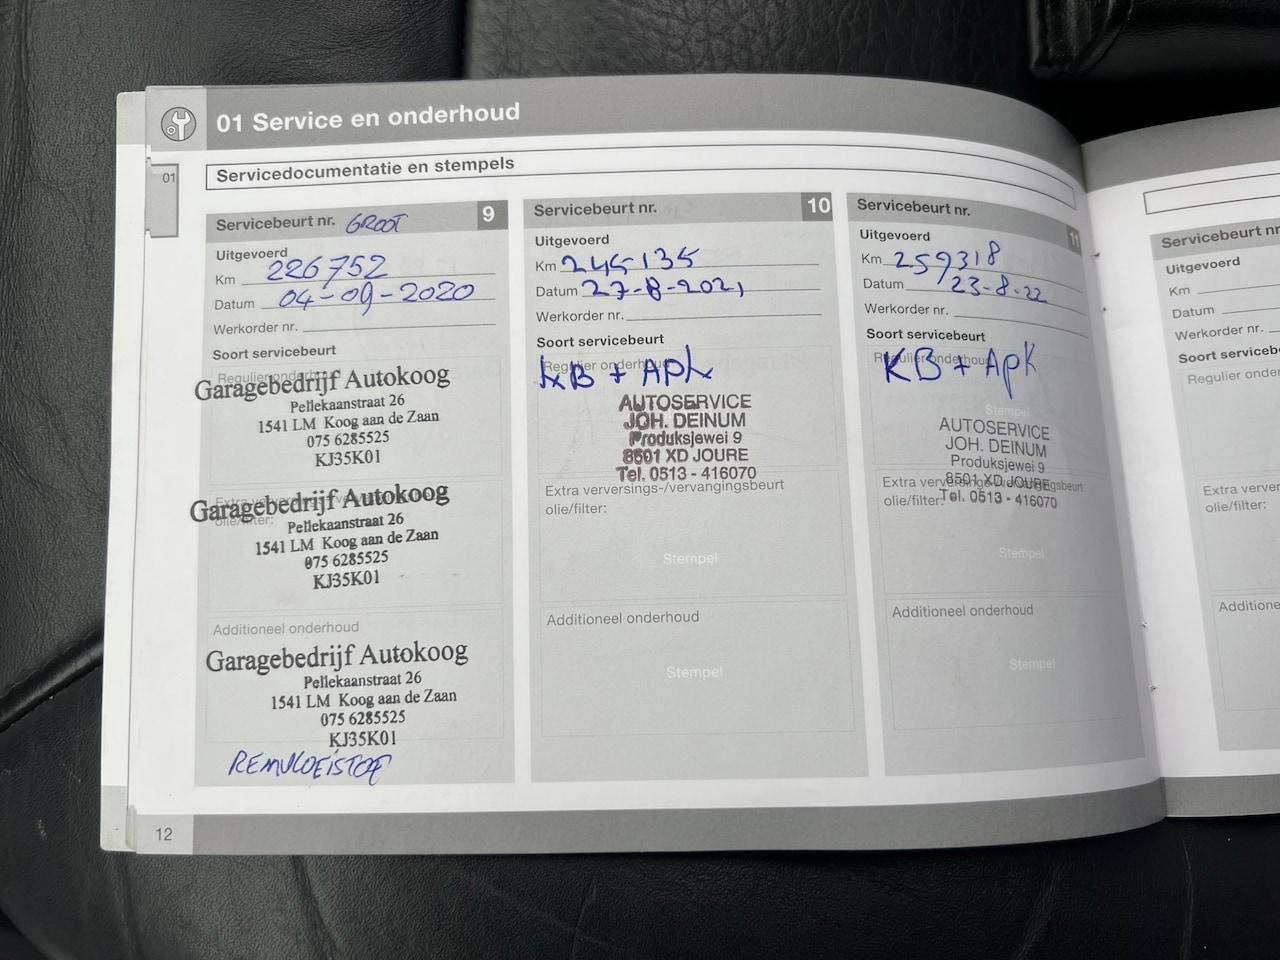 01 Service en onderhoud
01
Servicedocumentatie en stempels
Servicebeurt nr. GROOT 9
Uitgevoerd
Km 226752
Datum 04-09-2020
Werkorder nr.
Soort servicebeurt
Regulier onderhoud
Garagebedrijf Autokoog
Pellekaanstraat 26
1541 LM Koog aan de Zaan
075 6285525
KJ35K01
Garagebedrijf Autokoog
olie/filter:
Pellekaanstraat 26
1541 LM Koog aan de Zaan
075 6285525
KJ35K01
Additioneel onderhoud
Garagebedrijf Autokoog
Pellekaanstraat 26
1541 LM Koog aan de Zaan
075 6285525
KJ35K01
REMVLOEISTOF
Servicebeurt nr. 10
Uitgevoerd
Km 245135
Datum 27-8-2021
Werkorder nr.
Soort servicebeurt
Regulier onderhoud
KB + Apk
AUTOSERVICE
JOH. DEINUM
Produksjewei 9
8501 XD JOURE
Tel. 0513 - 416070
Extra verversings-/vervangingsbeurt
olie/filter:
Stempel
Additioneel onderhoud
Stempel
Servicebeurt nr. 11
Uitgevoerd
Km 259318
Datum 23-8-22
Werkorder nr.
Soort servicebeurt
Regulier onderhoud
KB + Apk
Stempel
AUTOSERVICE
JOH. DEINUM
Produksjewei 9
8501 XD JOURE
Extra verversings-/vervangingsbeurt
olie/filter:
Tel. 0513 - 416070
Stempel
Additioneel onderhoud
Stempel
12
Servicebeurt nr
Uitgevoerd
Km
Datum
Werkorder nr.
Soort serviceb
Regulier onder
Extra verver
olie/filter:
Additione